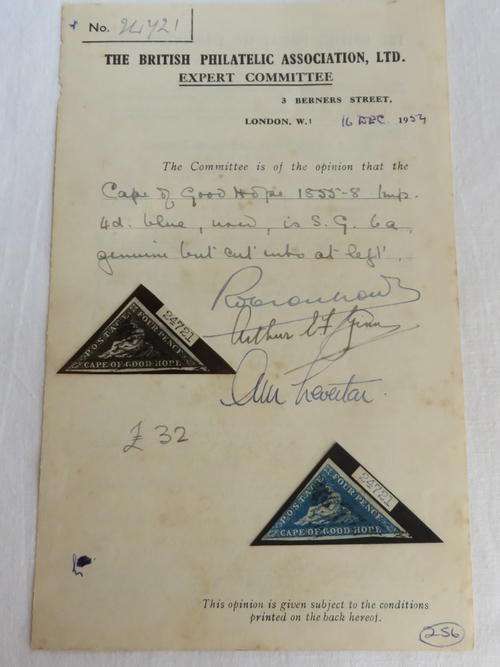 No. 24721
THE BRITISH PHILATELIC ASSOCIATION, LTD.
EXPERT COMMITTEE
3 BERNERS STREET,
LONDON, W.1 16 DEC 1954
The Committee is of the opinion that the
Cape of Good Hope 1855-8 Imp.
4d. blue, used, is S.G. 6a,
genuine but cut into at left.
24721
POSTAGE FOUR PENCE
CAPE OF GOOD HOPE
Arthur
£ 32
24721
POSTAGE FOUR PENCE
CAPE OF GOOD HOPE
This opinion is given subject to the conditions
printed on the back hereof.
256